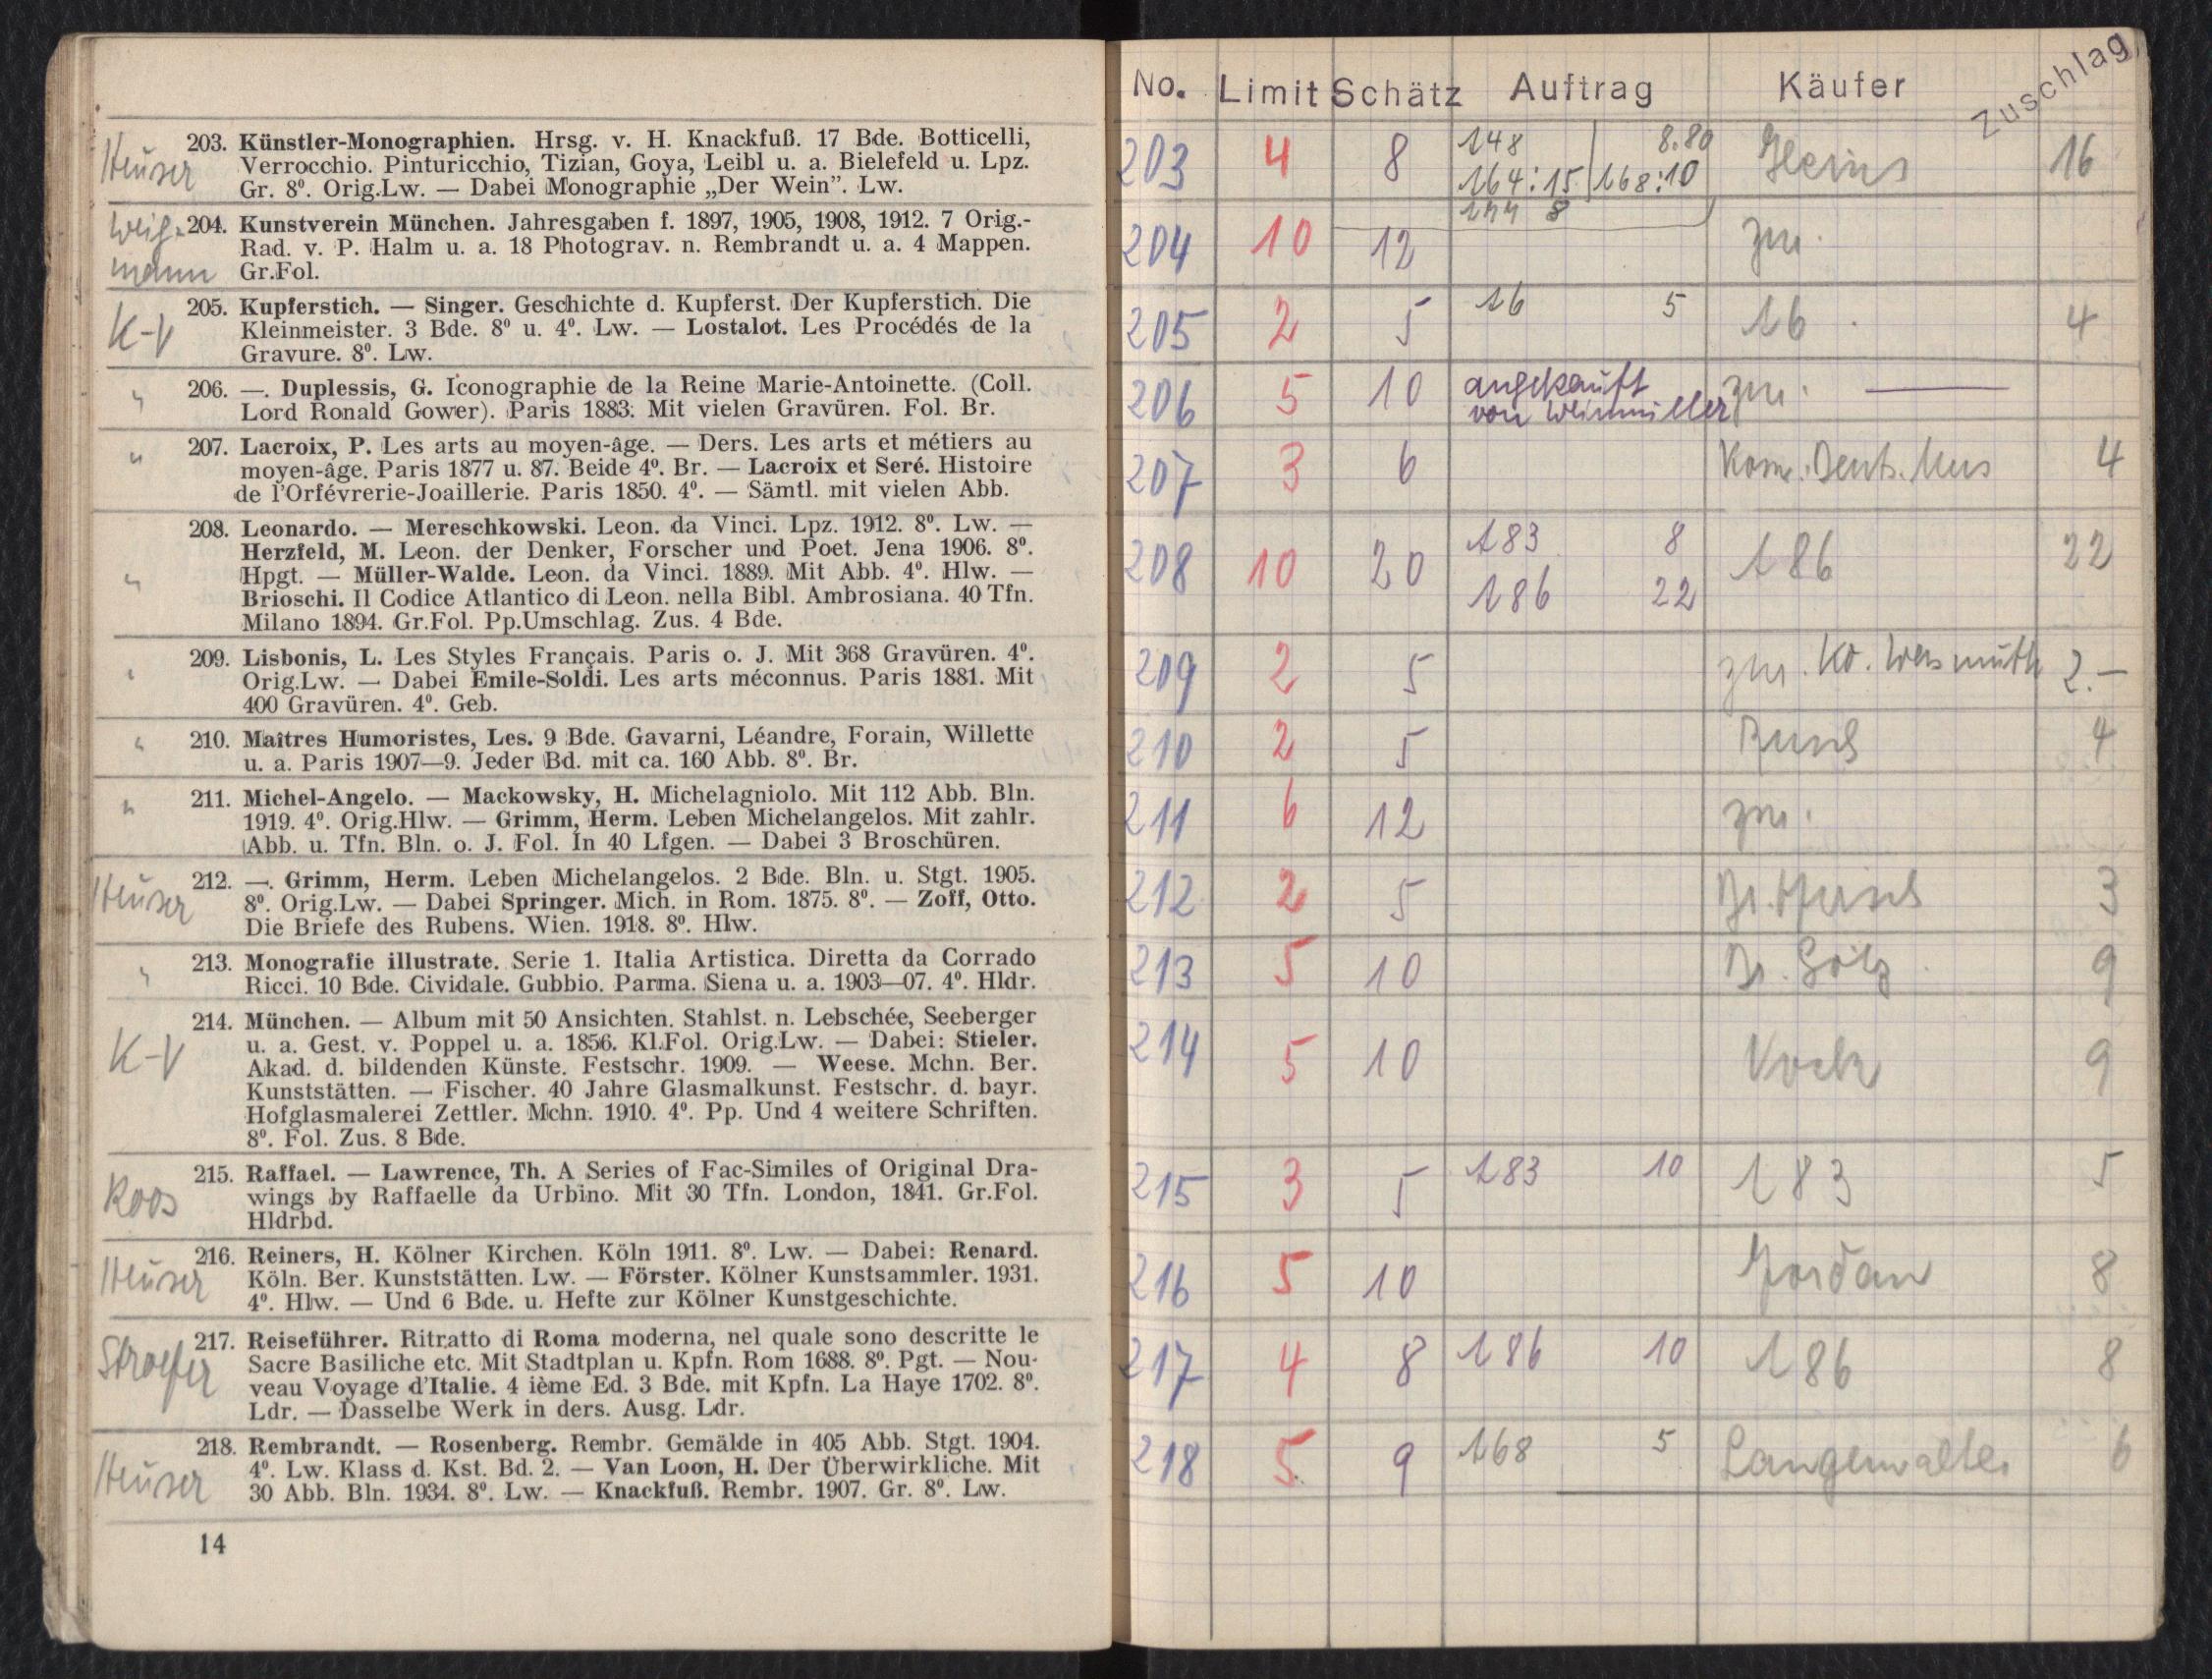 Heuser
203. Künstler-Monographien. Hrsg. v. H. Knackfuß. 17 Bde. Botticelli,
Verrocchio. Pinturicchio, Tizian, Goya, Leibl u. a. Bielefeld u. Lpz.
Gr. 8⁰. Orig.Lw. — Dabei Monographie „Der Wein”. Lw.
Weig-
mann
204. Kunstverein München. Jahresgaben f. 1897, 1905, 1908, 1912. 7 Orig.-
Rad. v. P. Halm u. a. 18 Photograv. n. Rembrandt u. a. 4 Mappen.
Gr.Fol.
K-V
205. Kupferstich. — Singer. Geschichte d. Kupferst. Der Kupferstich. Die
Kleinmeister. 3 Bde. 8⁰ u. 4⁰. Lw. — Lostalot. Les Procédés de la
Gravure. 8⁰. Lw.
"
206. —. Duplessis, G. Iconographie de la Reine Marie-Antoinette. (Coll.
Lord Ronald Gower). Paris 1883. Mit vielen Gravüren. Fol. Br.
"
207. Lacroix, P. Les arts au moyen-âge. — Ders. Les arts et métiers au
moyen-âge. Paris 1877 u. 87. Beide 4⁰. Br. — Lacroix et Seré. Histoire
de l'Orfévrerie-Joaillerie. Paris 1850. 4⁰. — Sämtl. mit vielen Abb.
"
208. Leonardo. — Mereschkowski. Leon. da Vinci. Lpz. 1912. 8⁰. Lw. —
Herzfeld, M. Leon. der Denker, Forscher und Poet. Jena 1906. 8⁰.
Hpgt. — Müller-Walde. Leon. da Vinci. 1889. Mit Abb. 4⁰. Hlw. —
Brioschi. Il Codice Atlantico di Leon. nella Bibl. Ambrosiana. 40 Tfn.
Milano 1894. Gr.Fol. Pp.Umschlag. Zus. 4 Bde.
"
209. Lisbonis, L. Les Styles Français. Paris o. J. Mit 368 Gravüren. 4⁰.
Orig.Lw. — Dabei Emile-Soldi. Les arts méconnus. Paris 1881. Mit
400 Gravüren. 4⁰. Geb.
"
210. Maîtres Humoristes, Les. 9 Bde. Gavarni, Léandre, Forain, Willette
u. a. Paris 1907—9. Jeder Bd. mit ca. 160 Abb. 8⁰. Br.
"
211. Michel-Angelo. — Mackowsky, H. Michelagniolo. Mit 112 Abb. Bln.
1919. 4⁰. Orig.Hlw. — Grimm, Herm. Leben Michelangelos. Mit zahlr.
Abb. u. Tfn. Bln. o. J. Fol. In 40 Lfgen. — Dabei 3 Broschüren.
Heuser
212. —. Grimm, Herm. Leben Michelangelos. 2 Bde. Bln. u. Stgt. 1905.
8⁰. Orig.Lw. — Dabei Springer. Mich. in Rom. 1875. 8⁰. — Zoff, Otto.
Die Briefe des Rubens. Wien. 1918. 8⁰. Hlw.
"
213. Monografie illustrate. Serie 1. Italia Artistica. Diretta da Corrado
Ricci. 10 Bde. Cividale. Gubbio. Parma. Siena u. a. 1903—07. 4⁰. Hldr.
K-V
214. München. — Album mit 50 Ansichten. Stahlst. n. Lebschée, Seeberger
u. a. Gest. v. Poppel u. a. 1856. Kl.Fol. Orig.Lw. — Dabei: Stieler.
Akad. d. bildenden Künste. Festschr. 1909. — Weese. Mchn. Ber.
Kunststätten. — Fischer. 40 Jahre Glasmalkunst. Festschr. d. bayr.
Hofglasmalerei Zettler. Mchn. 1910. 4⁰. Pp. Und 4 weitere Schriften.
8⁰. Fol. Zus. 8 Bde.
Koos
215. Raffael. — Lawrence, Th. A Series of Fac-Similes of Original Dra-
wings by Raffaelle da Urbino. Mit 30 Tfn. London, 1841. Gr.Fol.
Hldrbd.
Heuser
216. Reiners, H. Kölner Kirchen. Köln 1911. 8⁰. Lw. — Dabei: Renard.
Köln. Ber. Kunststätten. Lw. — Förster. Kölner Kunstsammler. 1931.
4⁰. Hlw. — Und 6 Bde. u. Hefte zur Kölner Kunstgeschichte.
Stroefer
217. Reiseführer. Ritratto di Roma moderna, nel quale sono descritte le
Sacre Basiliche etc. Mit Stadtplan u. Kpfn. Rom 1688. 8⁰. Pgt. — Nou-
veau Voyage d'Italie. 4 ième Ed. 3 Bde. mit Kpfn. La Haye 1702. 8⁰.
Ldr. — Dasselbe Werk in ders. Ausg. Ldr.
Heuser
218. Rembrandt. — Rosenberg. Rembr. Gemälde in 405 Abb. Stgt. 1904.
4⁰. Lw. Klass d. Kst. Bd. 2. — Van Loon, H. Der Überwirkliche. Mit
30 Abb. Bln. 1934. 8⁰. Lw. — Knackfuß. Rembr. 1907. Gr. 8⁰. Lw.
14
No. Limit Schätz Auftrag Käufer Zuschlag
203 4 8 148 8.80 16
164:15 168:10
8
204 10 12 zur.
205 2 5 16 5 16 4
206 5 10 angekauft zur. —
von Weinmüller
207 3 6 Kom. Deut. Mus 4
208 10 20 183 8 186 22
186 22
209 2 5 zur. Ko. Wasmuth 2.—
210 2 5 Busch 4
211 6 12 zur.
212 2 5 Dr. 3
213 5 10 Dr. Götz 9
214 5 10 Vock 9
215 3 5 183 10 183 5
216 5 10 Jordan 8
217 4 8 186 10 186 8
218 5 9 168 5 Langenwalter 6